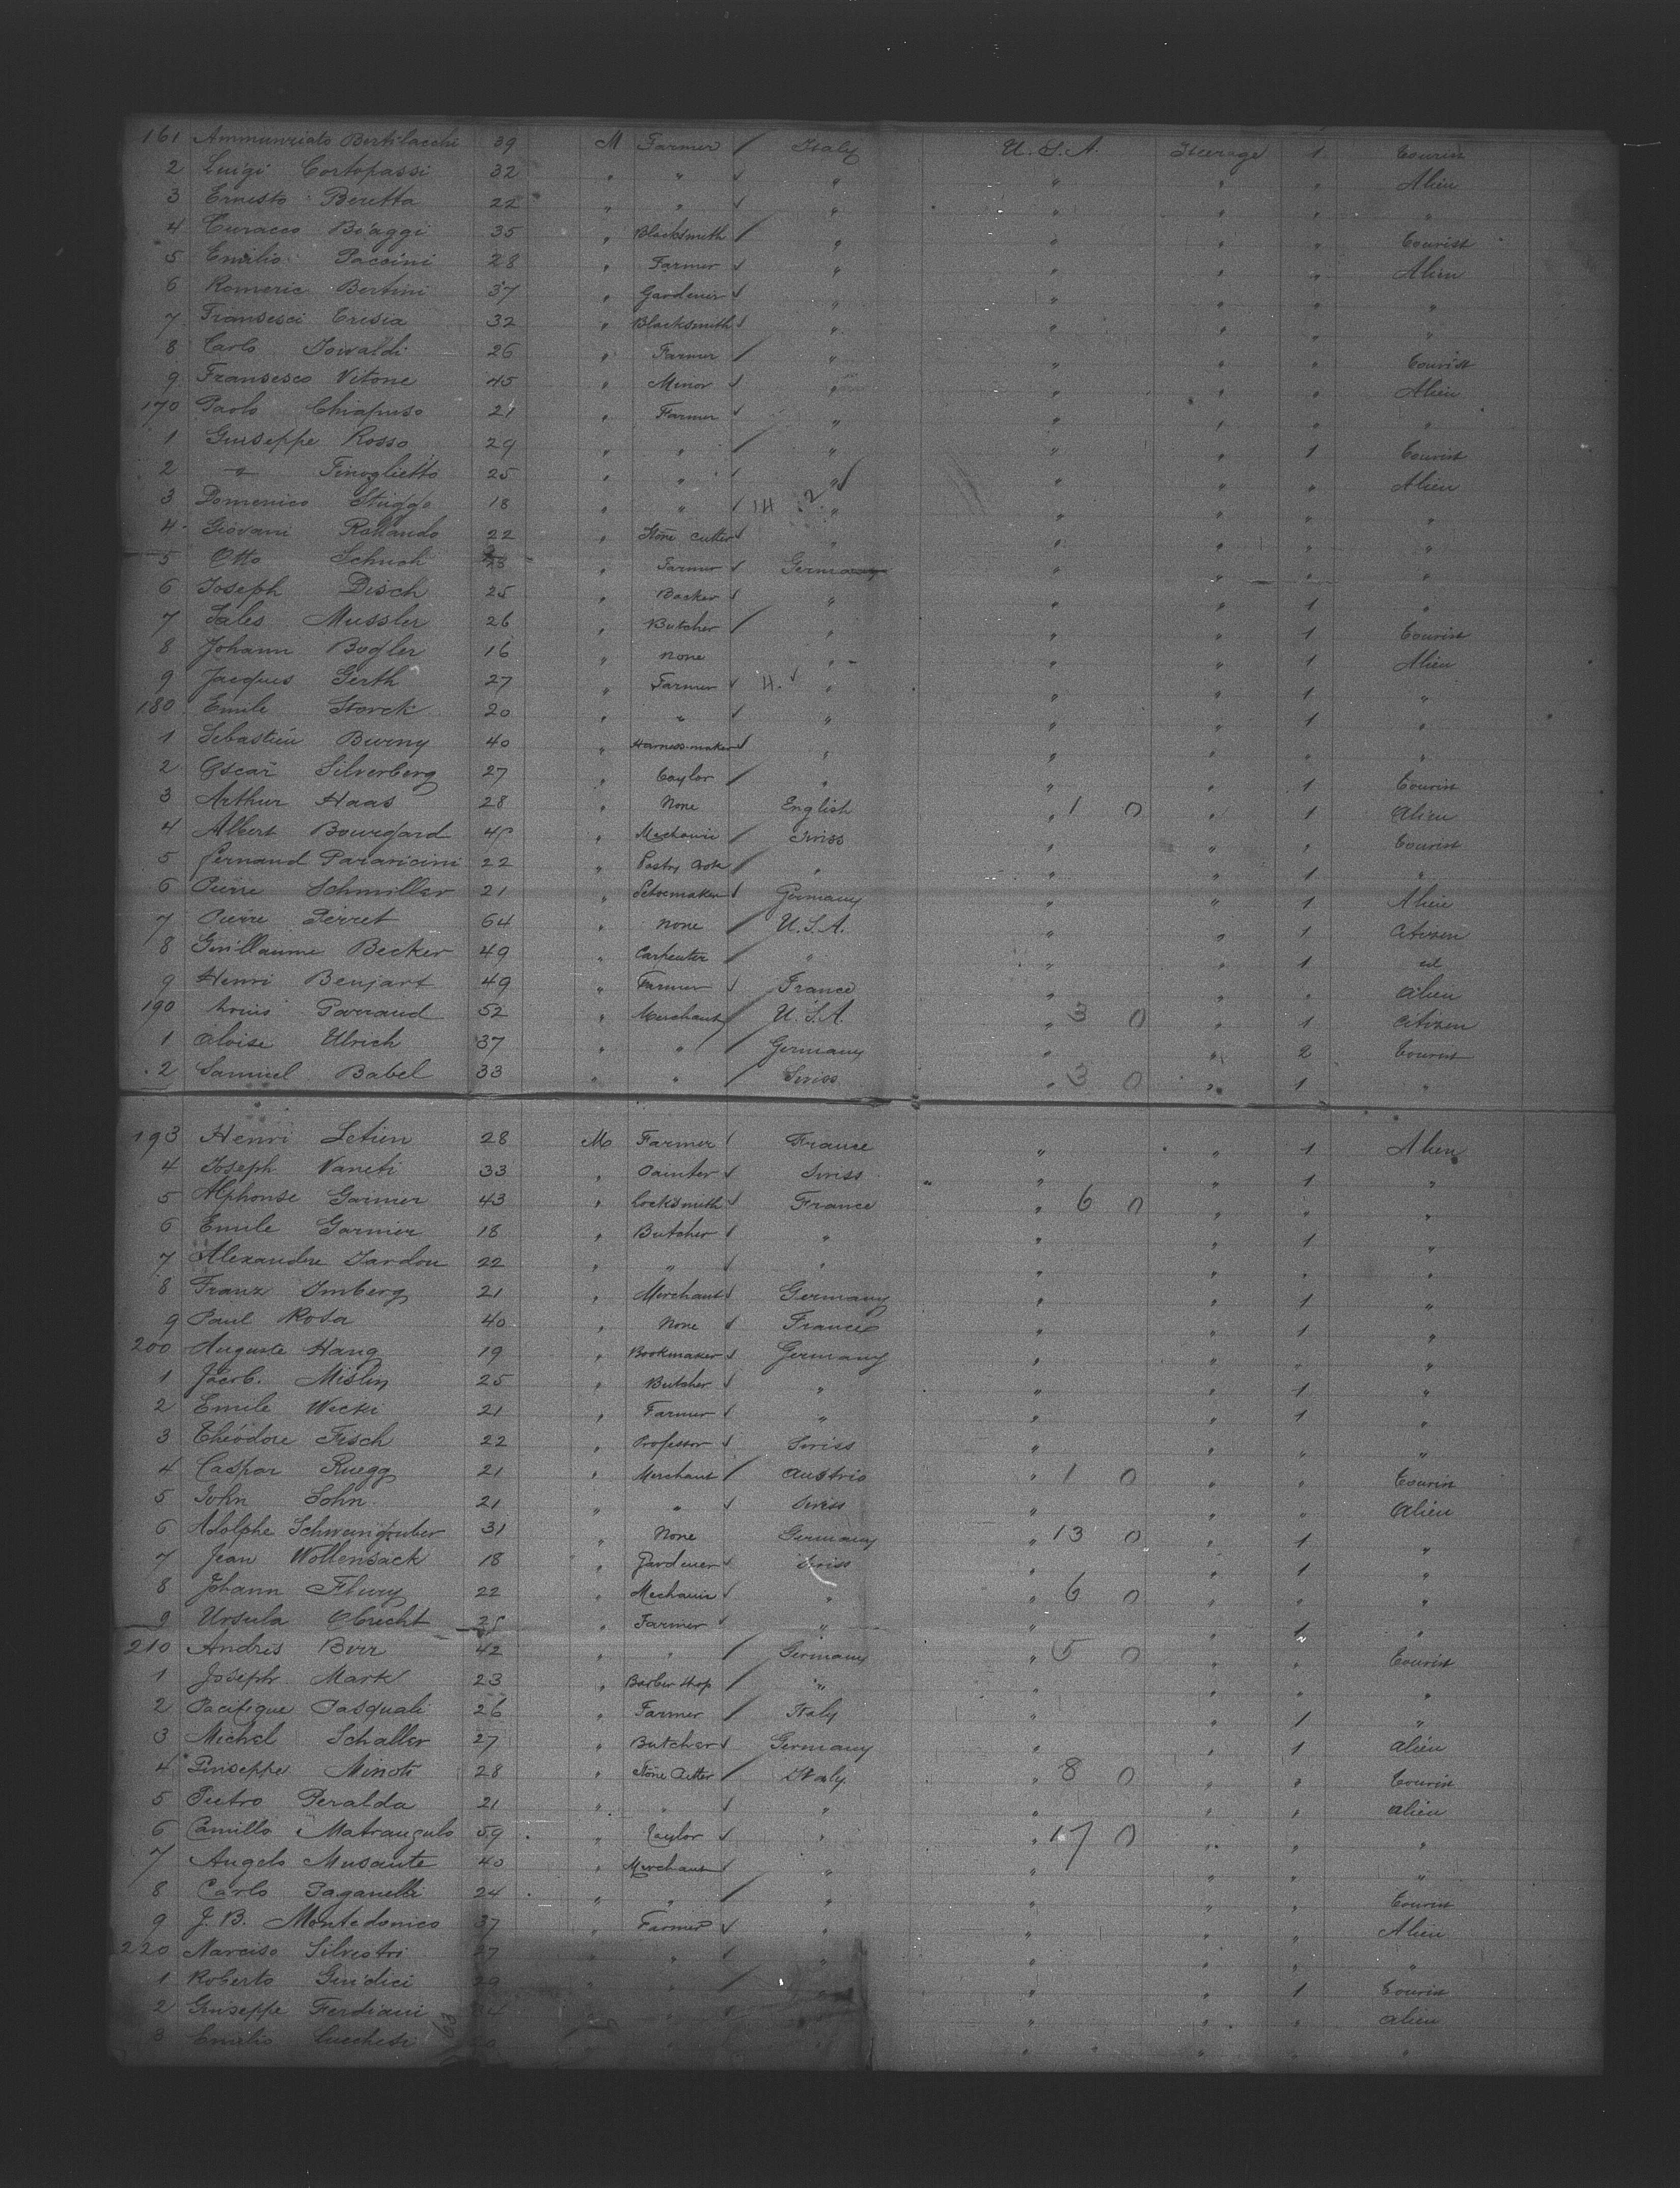 161 Ammunziato Bertilacchi 39 M Farmer / Italy U.S.A. Steerage 1 Tourist
2 Luigi Cortopassi 32 " " ✓ " " " " Alien
3 Ernesto Beretta 22 " " ✓ " " " " "
4 Curacco Biaggi 35 " Blacksmith / " " " " Tourist
5 Emilio Paccini 28 " Farmer ✓ " " " " Alien
6 Romeric Bertini 37 " Gardener ✓ " " " " "
7 Fransesci 32 " Blacksmith ✓ " " " " "
8 Carlo 26 " Farmer / " " " " Tourist
9 Fransesco Vitone 45 " Minor ✓ " " " " Alien
170 Paolo Chiapuso 21 " Farmer ✓ " " " " "
1 Guiseppe Rosso 29 " " / " " " 1 Tourist
2 " Finoglietto 25 " " ✓ " " " " Alien
3 Domenico 18 " " ✓ " " " " "
4 Giovani Rolando 22 " Stone cutter ✓ " " " " "
5 Otto Schuch " Farmer ✓ Germany " " " "
6 Joseph Disch 25 " Backer ✓ " " " 1 "
7 Sales Mussler 26 " Butcher / " " " 1 Tourist
8 Johann Bogler 16 " none " " " 1 Alien
9 Jacques Gerth 27 " Farmer ✓ H. ✓ " " " 1 "
180 Emile Storck 20 " " ✓ " " " 1 "
1 Sebastien Burny 40 " Harness-maker ✓ " " " " "
2 Oscar Silverberg 27 " Taylor / " " " 1 Tourist
3 Arthur Haas 28 " None English " 1 0 " 1 Alien
4 Albert Bouregard " Mechanic / Swiss " " " Tourist
5 Fernand Pararicini 22 " Pastry Cook / " " " 1 "
6 Pierre Schmiller 21 " Schoemaker ✓ Germany " " 1 Alien
7 Pierre Perret 64 " none / U.S.A. " " 1 Citizen
8 Guillaume Becker 49 " Carpenter / " " " 1 id
9 Henri Benjart 49 " Farmer ✓ France " " " Alien
190 Louis Garraud 52 " Merchant / U.S.A. " 3 0 " 1 Citizen
1 Aloise Ulrich 37 " " / Germany " " 2 Tourist
2 Samuel Babel 33 " " / Swiss " 3 0 " 1 "
193 Henri Letien 28 M Farmer / France " " 1 Alien
4 Joseph Vaneti 33 " Painter ✓ Swiss " " 1 "
5 Alphonse Garnier 43 " Locksmith ✓ France " 6 0 " " "
6 Emile Garnier 18 " Butcher ✓ " " " 1 "
7 Alexandre Tardon 22 " " ✓ " " " " "
8 Franz Imberg 21 " Merchant ✓ Germany " " 1 "
9 Paul Rosa 40 " None ✓ France " " 1 "
200 Auguste Haug 19 " Bookmaker ✓ Germany " " " "
1 Jacob. Mislin 25 " Butcher ✓ " " " 1 "
2 Emile 21 " Farmer ✓ " " " 1 "
3 Théodore Fisch 22 " Professor ✓ Swiss " " " "
4 Caspar Ruegg 21 " Merchant / Austria " 1 0 " " Tourist
5 John Sohn 21 " " ✓ Swiss " " " Alien
6 Adolphe Schwaingruber 31 " None Germany " 13 0 " 1 "
7 Jean Wollensack 18 " Gardener ✓ Swiss " " 1 "
8 Johann Fleury 22 " Mechanic ✓ " " 6 0 " " "
9 Ursula Obrecht " Farmer ✓ " " " 1 "
210 Andres Burr 42 " " / Germany " 5 0 " " Tourist
1 Joseph Mark 23 " Barber Shop / " " " " "
2 Pacifique Pasquali 26 " Farmer / Italy " " 1 "
3 Michel Schaller 27 " Butcher ✓ Germany " " 1 Alien
4 Guiseppe Minoti 28 " Stone Cutter / Italy " 8 0 " " Tourist
5 Pietro Peralda 21 " " ✓ " " " " Alien
6 Camillo Matrangulo 59 " Taylor ✓ " " 17 0 " " "
7 Angelo Musante 40 " Merchant ✓ " " " " "
8 Carlo Paganelli 24 " " / " " " " Tourist
9 J. B. Montedonico 37 " Farmer ✓ " " " " Alien
220 Narciso Silvestri 27 " " ✓ " " " " "
1 Roberto Giudici 29 " " / " " " 1 Tourist
2 Guiseppe Ferdiani " " ✓ " " " " Alien
3 Emilio Lucchesi " " " " "